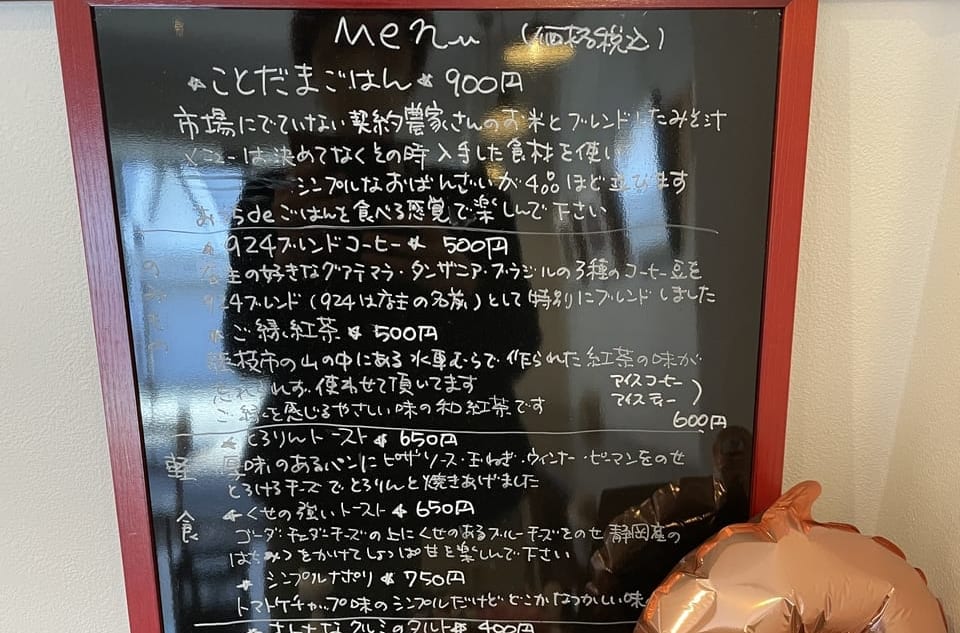 Menu (価格税込)
*ことだまごはん* 900円
市場にでていない契約農家さんのお米とブレンドしたみそ汁
メニューは決めてなくその時入手した食材を使い
シンプルなおばんざいが4品ほど並びます
deごはんを食べる感覚で楽しんで下さい
*924ブレンドコーヒー* 500円
店主の好きなグアテマラ・タンザニア・ブラジルの3種のコーヒー豆を
924ブレンド(924は店主の名前)として特別にブレンドしました
*ご縁紅茶* 500円
枝市の山の中にある水車むらで作られた紅茶の味が
忘れられず、使わせて頂いてます
ご縁を感じるやさしい味の和紅茶です
アイスコーヒー
アイスティー
600円
軽食
*とろりんトースト* 650円
厚味のあるパンにピザソース・玉ねぎ・ウィンナー・ピーマンをのせ
とろけるチーズでとろりんと焼きあげました
*くせの強いトースト* 650円
ゴーダ・チェダーチーズの上にくせのあるブルーチーズをのせ静岡産の
はちみつをかけてしょっぱ甘を楽しんで下さい
*シンプルナポリ* 750円
トマトケチャップ味のシンプルだけどどこかなつかしい味
クルミのタルト* 400円